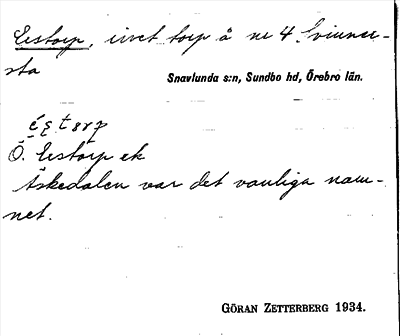 Eestorp, rivet torp å nr 4 Svinner-
sta
Snavlunda s:n, Sundbo hd, Örebro län.
Ö. Eestorp ek
Äskedalen var det vanliga nam-
net.
GÖRAN ZETTERBERG 1934.